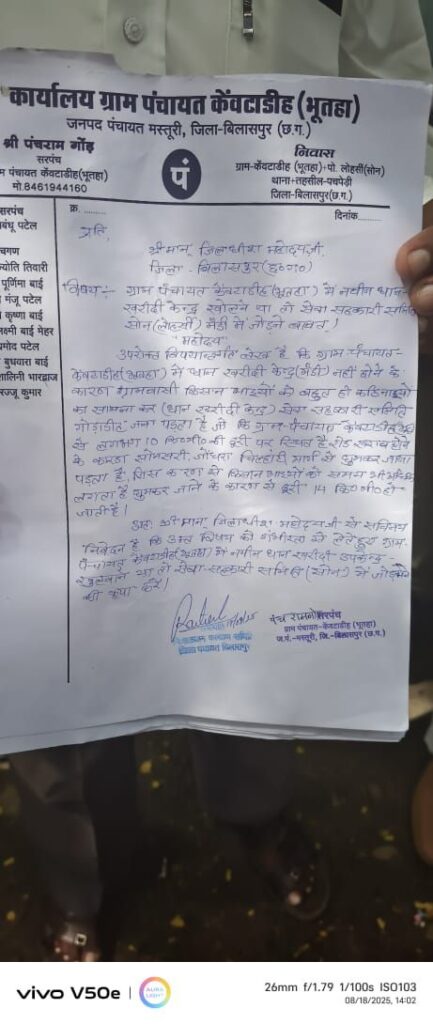 कार्यालय ग्राम पंचायत केंवटाडीह (भूतहा)
जनपद पंचायत मस्तूरी, जिला-बिलासपुर (छ.ग.)
श्री पंचराम गोंड़
सरपंच
पंचायत केंवटाडीह(भूतहा)
मो.8461944160
पं
निवास
ग्राम-केंवटाडीह (भूतहा)+पो. लोहर्सी(सोन)
थाना+तहसील-पचपेड़ी
जिला-बिलासपुर(छ.ग.)
क्र. .........
दिनांक............
सरपंच
पटेल
तिवारी
पूर्णिमा बाई
मंजू पटेल
कृष्णा बाई
बाई मेहर
पटेल
बुधवारा बाई
भारद्वाज
कुमार
प्रति,
श्रीमान् जिलाधीश महोदय जी,
जिला - बिलासपुर (छ०ग०)
विषय :- ग्राम पंचायत केंवटाडीह (भूतहा) में नवीन धान
खरीदी केन्द्र खोलने या तो सेवा सहकारी समिति
सोन (लोहर्सी) मंडी में जोड़ने बाबत्।
महोदय
उपरोक्त विषयान्तर्गत लेख है कि ग्राम पंचायत-
केंवटाडीह (भूतहा) में धान खरीदी केन्द्र (मंडी) नहीं होने के
कारण ग्रामवासी किसान भाइयों को बहुत ही कठिनाइयों
का सामना कर (धान खरीदी केन्द्र) सेवा सहकारी समिति
जाना पड़ता है जो कि ग्राम पंचायत केंवटाडीह
से लगभग 10 कि०मी० की दूरी पर स्थित है रोड खराब होने
के कारण सोनसरी, जोंधरा मार्ग से घुमकर जाना
पड़ता है, जिस कारण से किसान भाइयों को समय भी
लगता है घुमकर जाने के कारण से दूरी 14 कि०मी० हो
जाती है।
अतः श्रीमान् जिलाधीश महोदय जी से सविनय
निवेदन है कि उक्त विषय को गंभीरता से लेते हुए ग्राम-
पंचायत केंवटाडीह (भूतहा) में नवीन धान खरीदी उपकेन्द्र
खुलवाने या तो सेवा सहकारी समिति (सोन) में जोड़ने
की कृपा करें।
जिला पंचायत बिलासपुर
सरपंच
ग्राम पंचायत-केंवटाडीह (भूतहा)
ज.पं.-मस्तूरी, जि.-बिलासपुर (छ.ग.)
vivo V50e
AURA LIGHT
26mm f/1.79 1/100s ISO103
08/18/2025, 14:02